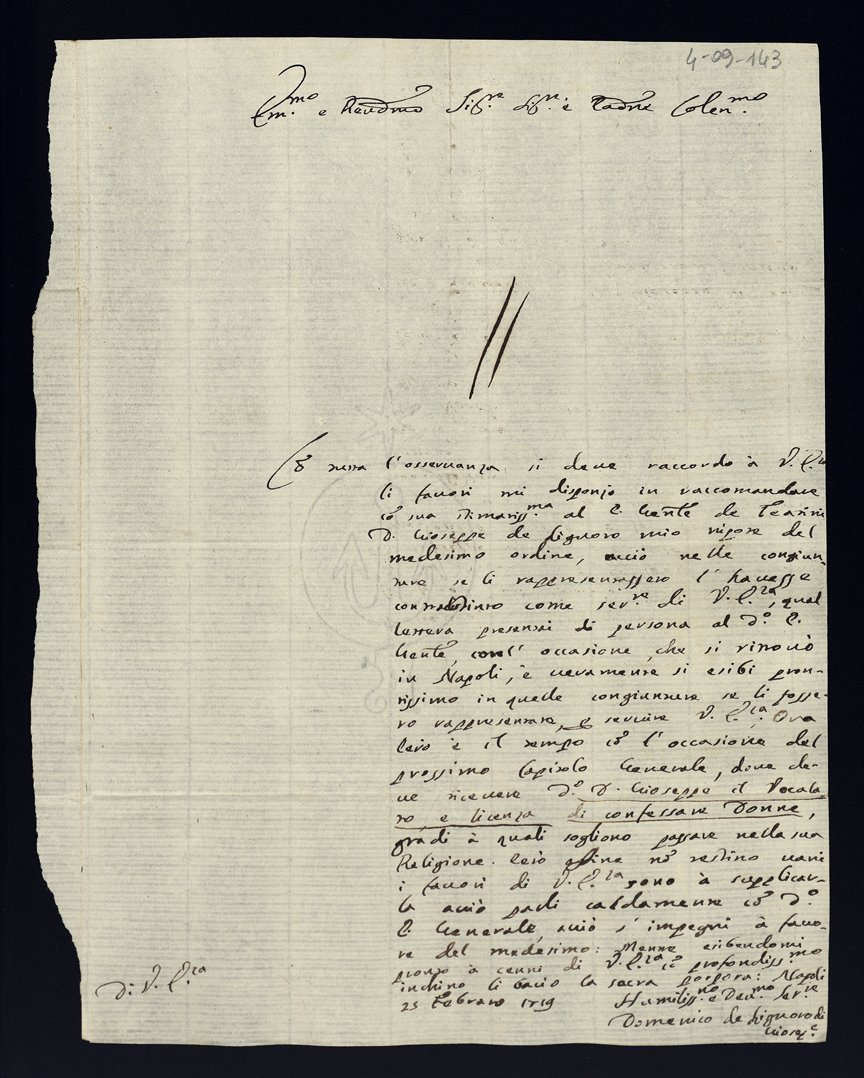 4-09-143
Em.mo e Revdmo Sig.re Sig.re e Padrne Colen.mo
Cõ tutta l'osservanza si deve raccordo à V. E.za
li favori mi dispenzò in raccomandare
cõ sua stimatiss.ma al P. Gentẽ de Teatini
D. Gioseppe de Liguoro mio nipote del
medesimo ordine, acciò nelle congiun-
ture se li rappresentassero l'havesse
contradistinto come ser.re di V. E.za, qual
lettera presentai di persona al D.o P.
Gentẽ, con l'occasione, che si ritrovò
in Napoli, e veramente si esibì pron-
tissimo in quelle congiunture se li fosse-
ro rappresentate, e servire V. E.za. Ora
però è il tempo cõ l'occasione del
prossimo Capitolo Generale, dove de-
ve ricevere D.o D. Gioseppe il Vocala-
to, e licenza di confessare Donne,
gradi à quali sogliono passare nella sua
Religione. Però affine nõ restino vani
i favori di V. E.za sono à supplicar-
la acciò parli caldamente cõ D.o
P. Generale, acciò s'impegni à favo-
re del medesimo: Mentre esibendomi
pronto à cenni di V. E.za cõ profondiss.mo
inchino li bacio la sacra porpora: Napoli
25 Febraro 1719
Humiliss.mo e Dev.mo Ser.re
Domenico de Liguoro di
Giosep.e
Di V. E.za